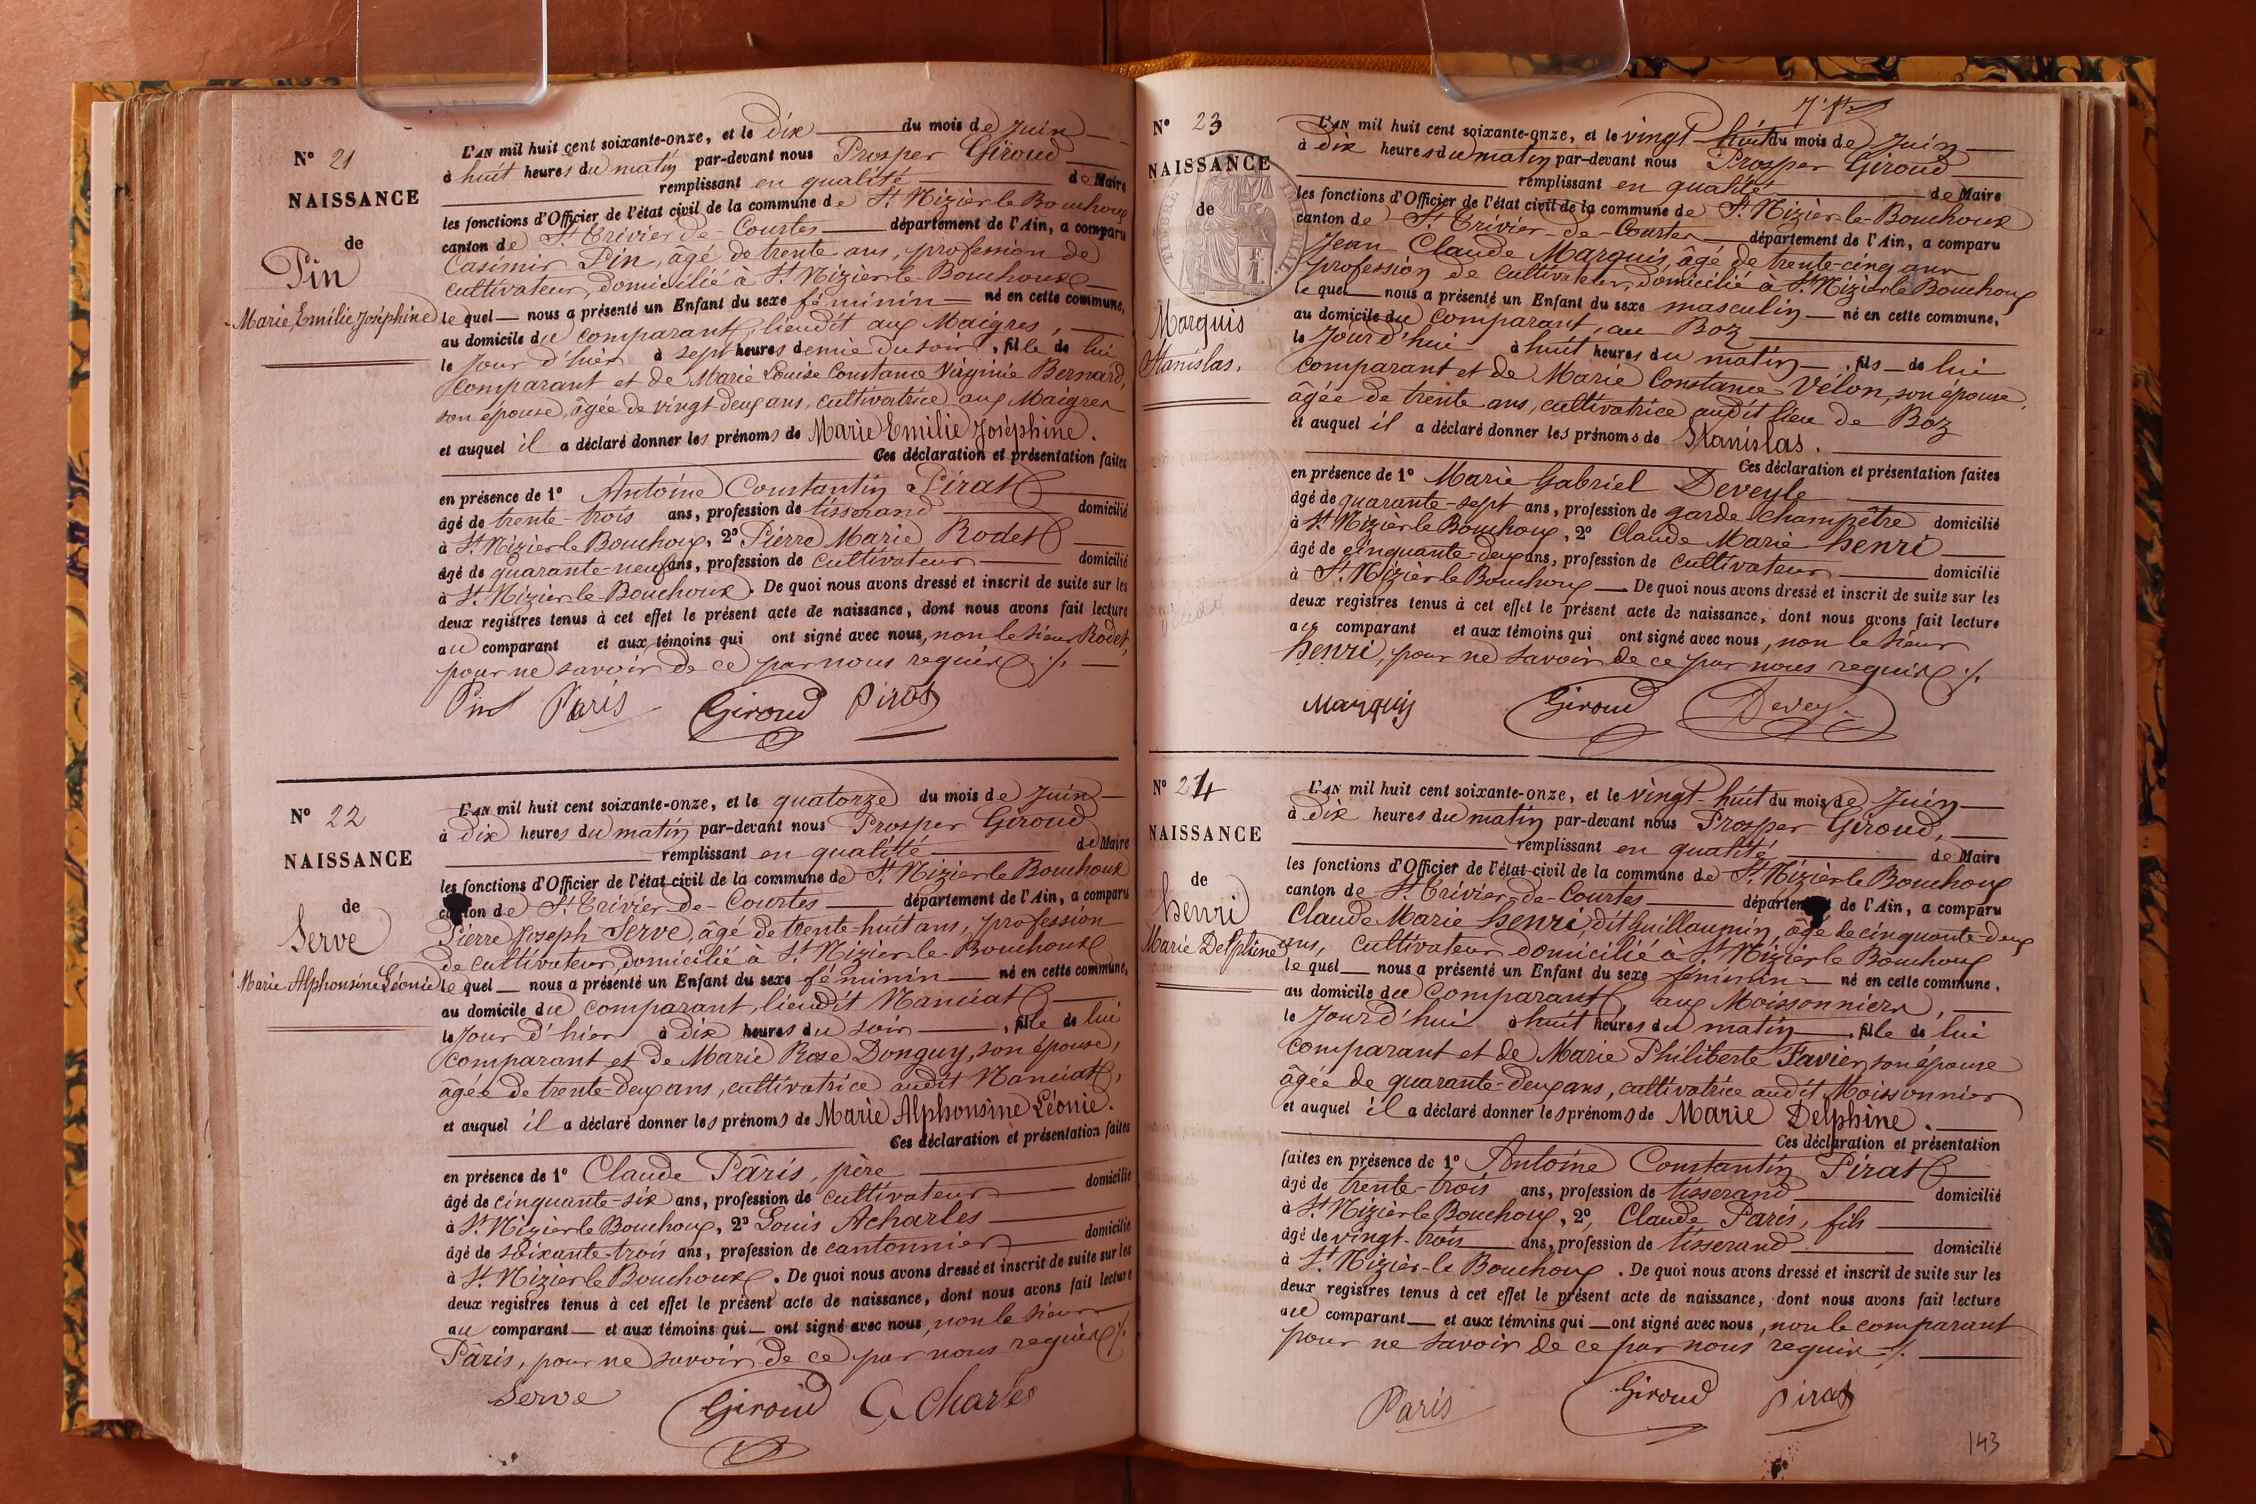 N° 21
NAISSANCE
de
Pin
Marie Emilie Joséphine
L'AN mil huit cent soixante-onze, et le dix du mois de Juin
à huit heures du matin par-devant nous Prosper Giroud
remplissant en qualité de Maire
les fonctions d'Officier de l'état civil de la commune de St. Nizier le Bouchoux
canton de St. Trivier-de-Courtes département de l'Ain, a comparu
Casimir Pin, âgé de trente ans, profession de
cultivateur, domicilié à St. Nizier le Bouchoux
le quel nous a présenté un Enfant du sexe féminin né en cette commune,
au domicile du comparant, lieudit aux Maigres,
le Jour d'hier à sept heures demie du soir, fille de lui
comparant et de Marie Louise Constance Virginie Bernard,
son épouse, âgée de vingt-deux ans, cultivatrice aux Maigres
et auquel il a déclaré donner les prénoms de Marie Emilie Joséphine.
Ces déclaration et présentation faites
en présence de 1° Antoine Constantin Pirat
âgé de trente-trois ans, profession de tisserand domicilié
à St. Nizier le Bouchoux, 2° Pierre Marie Rodet
âgé de quarante-neuf ans, profession de cultivateur domicilié
à St. Nizier-le-Bouchoux. De quoi nous avons dressé et inscrit de suite sur les
deux registres tenus à cet effet le présent acte de naissance, dont nous avons fait lecture
au comparant et aux témoins qui ont signé avec nous, non le sieur Rodet,
pour ne savoir de ce par nous requis ./.
Pin Paris Giroud Pirat
N° 22
NAISSANCE
de
Serve
Marie Alphonsine Léonie
L'AN mil huit cent soixante-onze, et le quatorze du mois de Juin
à dix heures du matin par-devant nous Prosper Giroud
remplissant en qualité de Maire
les fonctions d'Officier de l'état civil de la commune de St. Nizier le Bouchoux
canton de St. Trivier-de-Courtes département de l'Ain, a comparu
Pierre Joseph Serve, âgé de trente-huit ans, profession
de cultivateur, domicilié à St. Nizier-le-Bouchoux
le quel nous a présenté un Enfant du sexe féminin né en cette commune,
au domicile du comparant, lieudit Nanciat
le Jour d'hier à dix heures du soir, fille de lui
comparant et de Marie Rose Donguy, son épouse,
âgée de trente-deux ans, cultivatrice audit Nanciat,
et auquel il a déclaré donner les prénoms de Marie Alphonsine Léonie.
Ces déclaration et présentation faites
en présence de 1° Claude Pâris, père
âgé de cinquante-six ans, profession de cultivateur domicilié
à St. Nizier le Bouchoux, 2° Louis Acharles
âgé de soixante-trois ans, profession de cantonnier domicilié
à St. Nizier le Bouchoux. De quoi nous avons dressé et inscrit de suite sur les
deux registres tenus à cet effet le présent acte de naissance, dont nous avons fait lecture
au comparant et aux témoins qui ont signé avec nous, non le sieur
Pâris, pour ne savoir de ce par nous requis ./.
Serve Giroud Acharles
N° 23
NAISSANCE
de
Marquis
Stanislas.
L'AN mil huit cent soixante-onze, et le vingt-huit du mois de Juin
à dix heures du matin par-devant nous Prosper Giroud
remplissant en qualité de Maire
les fonctions d'Officier de l'état civil de la commune de St. Nizier-le-Bouchoux
canton de St. Trivier-de-Courtes département de l'Ain, a comparu
Jean Claude Marquis, âgé de trente-cinq ans
profession de cultivateur, domicilié à St. Nizier le Bouchoux
le quel nous a présenté un Enfant du sexe masculin né en cette commune,
au domicile du comparant, au Boz
le Jour d'hui à huit heures du matin, fils de lui
comparant et de Marie Constance Vélon, son épouse,
âgée de trente ans, cultivatrice audit lieu de Boz
et auquel il a déclaré donner les prénoms de Stanislas.
Ces déclaration et présentation faites
en présence de 1° Marie Gabriel Deveyle
âgé de quarante-sept ans, profession de garde-champêtre domicilié
à St. Nizier le Bouchoux, 2° Claude Marie henri
âgé de cinquante-deux ans, profession de cultivateur domicilié
à St. Nizier le Bouchoux De quoi nous avons dressé et inscrit de suite sur les
deux registres tenus à cet effet le présent acte de naissance, dont nous avons fait lecture
au comparant et aux témoins qui ont signé avec nous, non le sieur
henri, pour ne savoir de ce par nous requis ./.
Marquis Giroud
N° 24
NAISSANCE
de
henri
Marie Delphine
L'AN mil huit cent soixante-onze, et le vingt-huit du mois de Juin
à dix heures du matin par-devant nous Prosper Giroud,
remplissant en qualité de Maire
les fonctions d'Officier de l'état-civil de la commune de St. Nizier le Bouchoux
canton de St. Trivier-de-Courtes département de l'Ain, a comparu
Claude Marie henri, dit Guillaumin, âgé de cinquante-deux
ans, cultivateur domicilié à St. Nizier le Bouchoux
le quel nous a présenté un Enfant du sexe féminin né en cette commune,
au domicile du comparant, aux Moissonniers,
le Jour d'hui à huit heures du matin, fille de lui
comparant et de Marie Philiberte Favier, son épouse
âgée de quarante-deux ans, cultivatrice audit Moissonnier
et auquel il a déclaré donner les prénoms de Marie Delphine.
Ces déclaration et présentation
faites en présence de 1° Antoine Constantin Pirat
âgé de trente-trois ans, profession de tisserand domicilié
à St. Nizier le Bouchoux, 2°, Claude Paris, fils
âgé de vingt-trois ans, profession de tisserand domicilié
à St. Nizier-le Bouchoux. De quoi nous avons dressé et inscrit de suite sur les
deux registres tenus à cet effet le présent acte de naissance, dont nous avons fait lecture
au comparant et aux témoins qui ont signé avec nous, non le comparant
pour ne savoir de ce par nous requis ./.
Paris Giroud Pirat
143